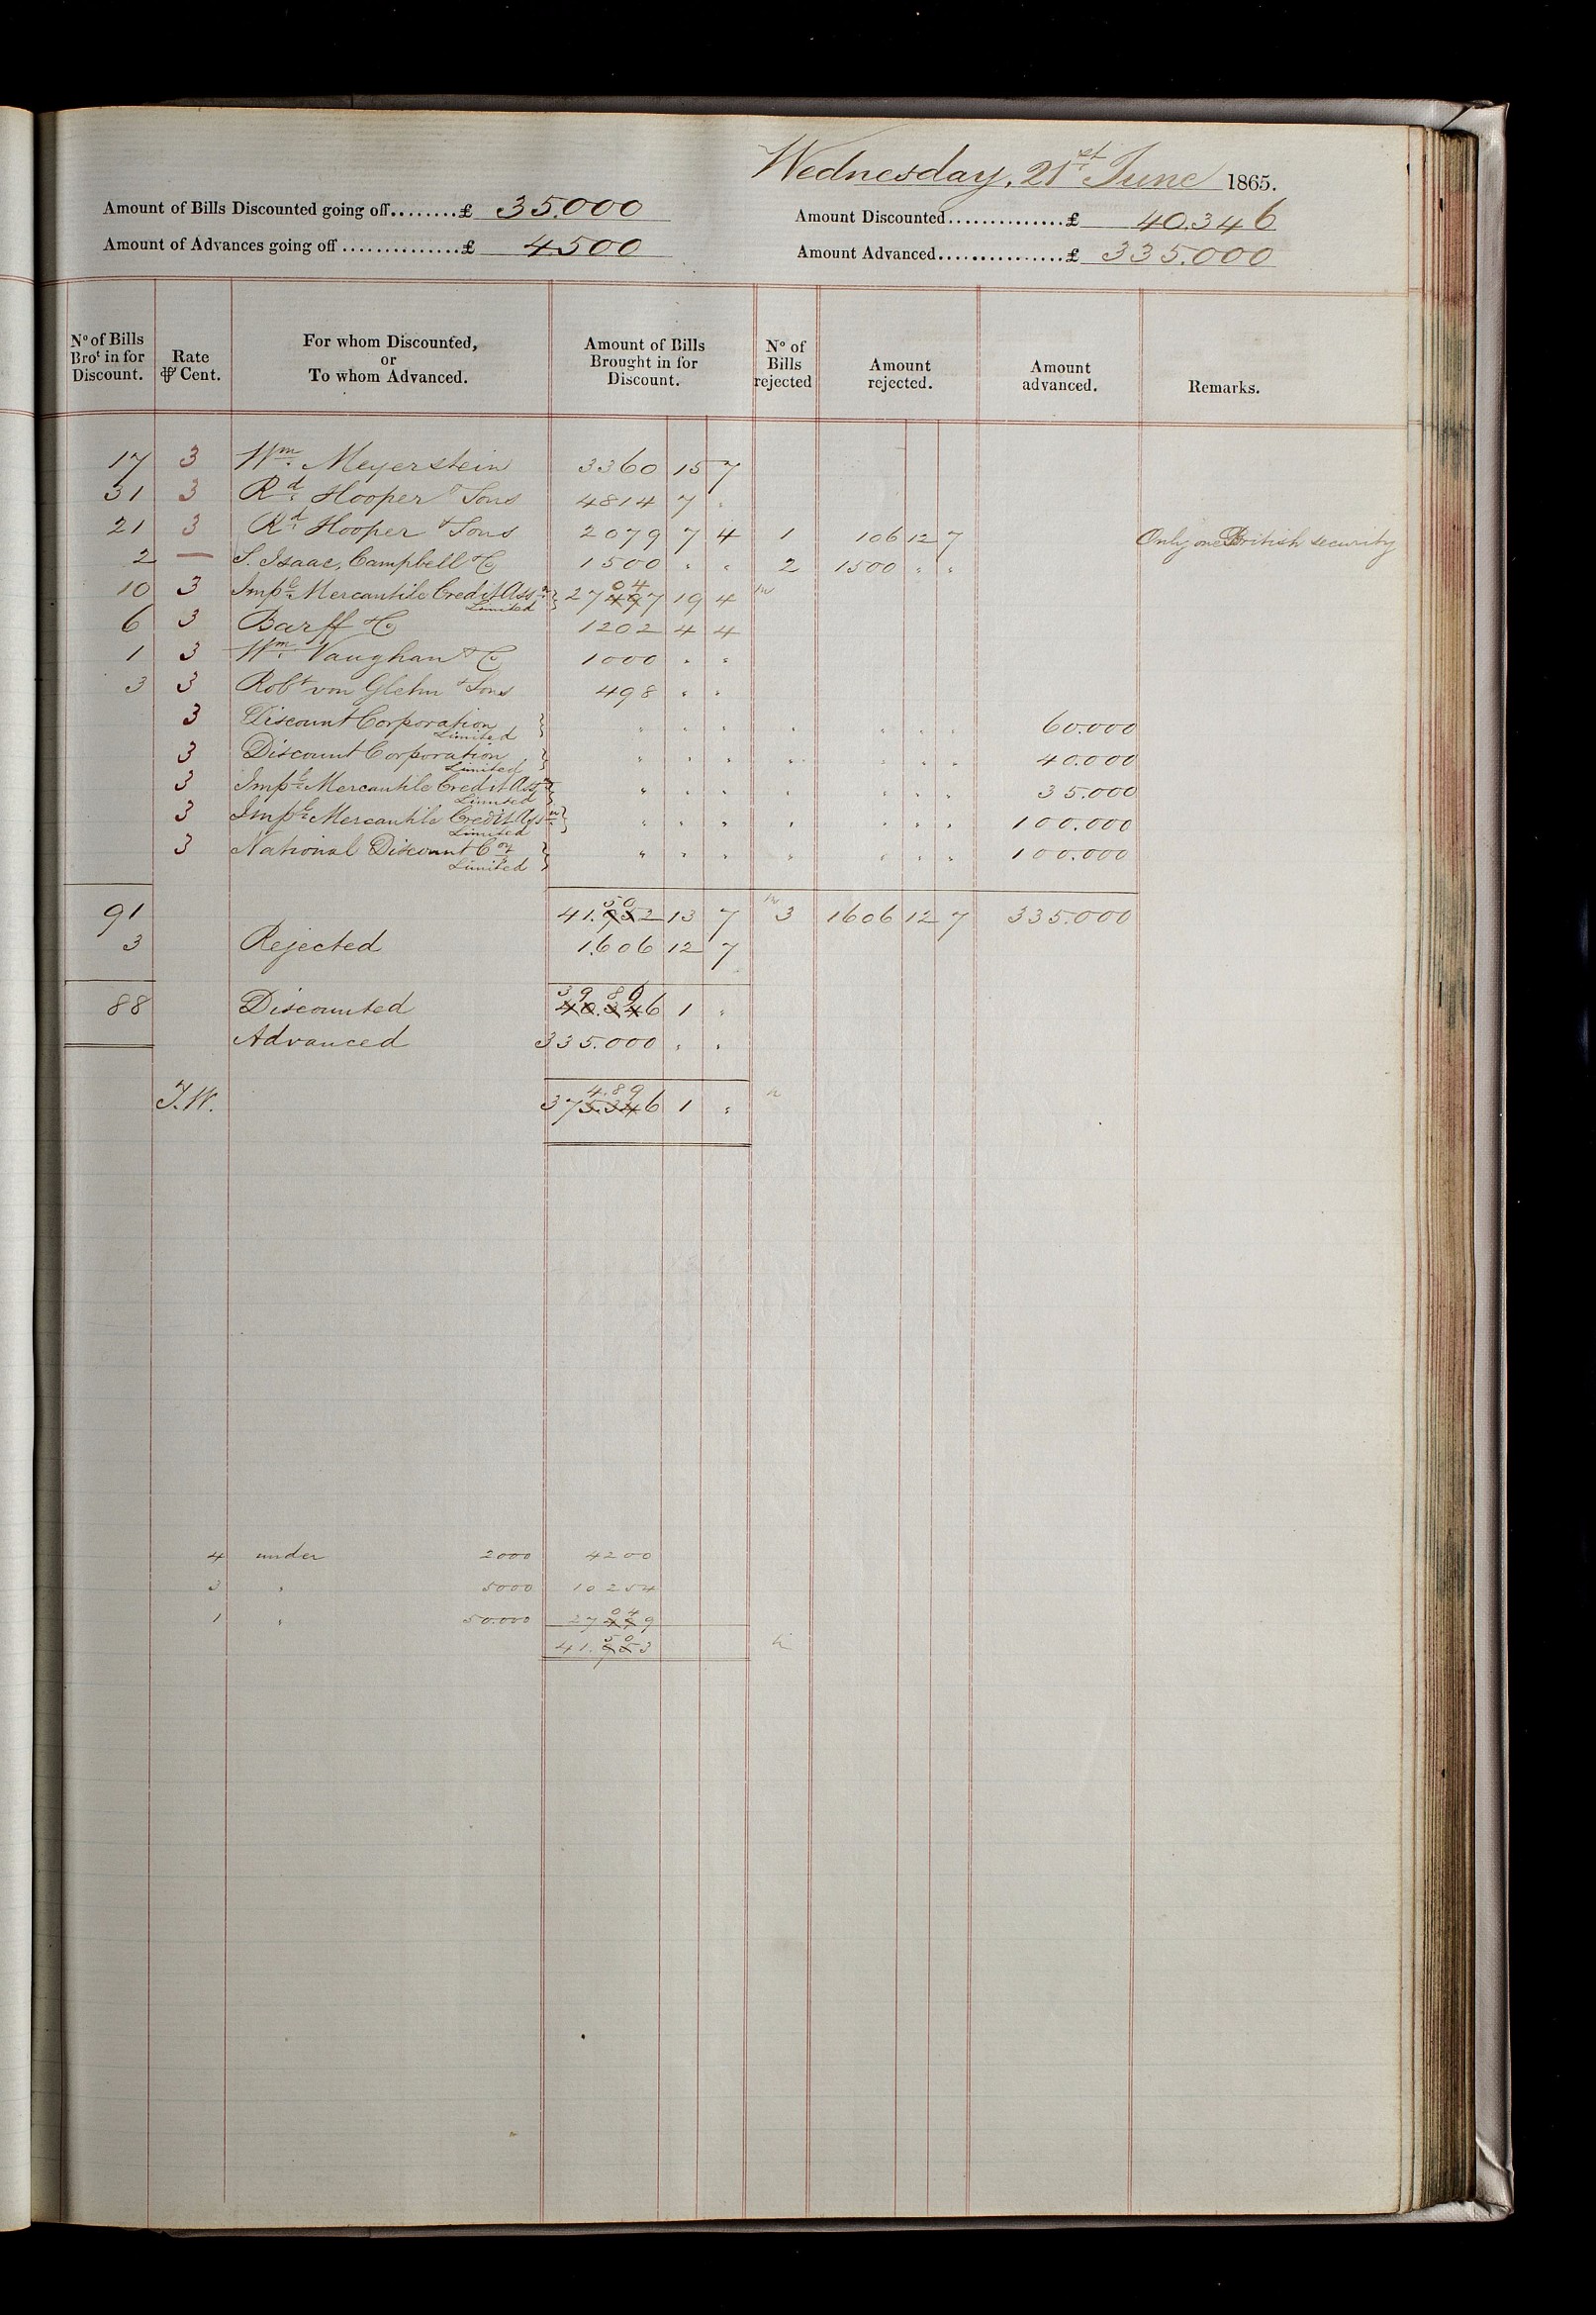 Wednesday, 21st June 1865.
Amount of Bills Discounted going off........£ 35.000
Amount Discounted..............£ 40.346
Amount of Advances going off ..............£ 4.500
Amount Advanced................£ 335.000
No of Bills Brot in for Discount. Rate ⅌ Cent. For whom Discounted, or To whom Advanced. Amount of Bills Brought in for Discount. No of Bills rejected Amount rejected. Amount advanced. Remarks.
17 3 Wm. Meyerstein 3360 15 7
31 3 Rd. Hooper & Sons 4814 7 "
21 3 Rd. Hooper & Sons 2079 7 4 1 106 12 7 Only one British security
2 — S. Isaac, Campbell & Co 1500 " " 2 1500 " "
10 3 Impl. Mercantile Credit Assn. Limited } 27497 04 19 4
6 3 Barff & Co 1202 4 4
1 3 Wm. Vaughan & Co 1000 " "
3 3 Robt von Glehn & Sons 498 " "
3 Discount Corporation Limited } " " " " " " " 60.000
3 Discount Corporation Limited } " " " " " " " 40.000
3 Impl. Mercantile Credit Assn. Limited } " " " " " " 35.000
3 Impl. Mercantile Credit Assn. Limited } " " " " " " " 100.000
3 National Discount Coy Limited } " " " " " " " 100.000
91 41.952 50 13 7 3 1606 12 7 335.000
3 Rejected 1.606 12 7
88 Discounted 40.346 39 89 1 "
Advanced 335.000 " "
J.W. 375.346 4.89 1 "
4 under 2000 4200
3 " 5000 10254
1 " 50.000 27499 04
41.953 50